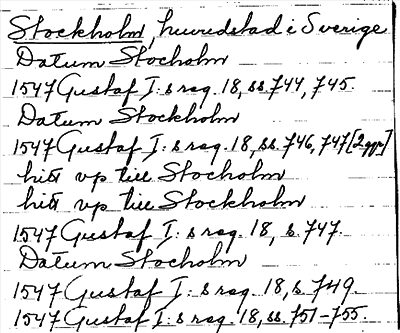 Stockholm, huvudstad i Sverige
Datum Stocholm
1547 Gustaf I:s reg. 18, ss. 744, 745.
Datum Stockholm
1547 Gustaf I:s reg. 18, ss. 746, 747 [2 ggr]
hitt vp till Stocholm
hitt vp till Stockholm
1547 Gustaf I:s reg. 18, s. 747.
Datum Stocholm
1547 Gustaf I:s reg. 18, s. 749.
1547 Gustaf I:s reg. 18, ss. 751-755.